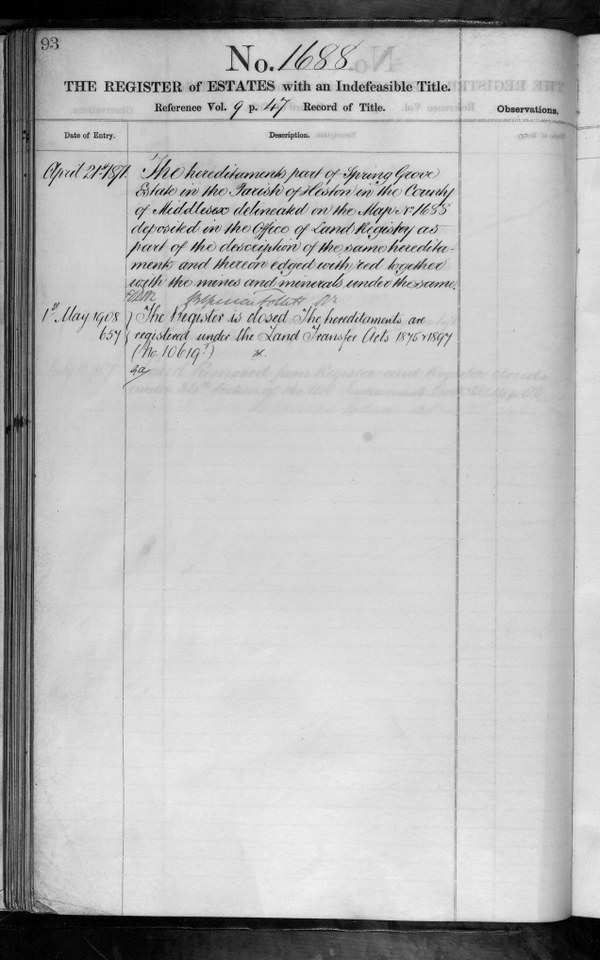 93
No. 1688
THE REGISTER of ESTATES with an Indefeasible Title.
Reference Vol. 9 p. 47 Record of Title.
Observations.
Date of Entry.
Description.
April 21st 1871
The hereditaments part of Spring Grove
Estate in the Parish of Heston in the County
of Middlesex delineated on the Map No 1688
deposited in the Office of Land Registry as
part of the description of the same heredita-
ments and thereon edged with red together
with the mines and minerals under the same.
1st May 1908
657
The Register is closed The hereditaments are
registered under the Land Transfer Acts 1875 & 1897
(No. 10619)